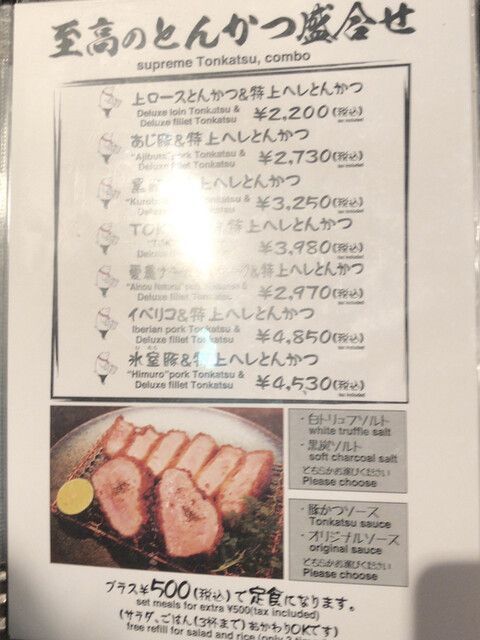 至高のとんかつ盛合せ
supreme Tonkatsu, combo
上ロースとんかつ&特上ヘレとんかつ
Deluxe loin Tonkatsu &
Deluxe fillet Tonkatsu
¥2,200(税込)
tax included
あじ豚&特上ヘレとんかつ
"Ajibuta" pork Tonkatsu &
Deluxe fillet Tonkatsu
¥2,730(税込)
tax included
上ヘレとんかつ
Tonkatsu &
Deluxe fillet Tonkatsu
¥3,250(税込)
tax included
特上ヘレとんかつ
Tonkatsu &
Deluxe fillet Tonkatsu
¥3,980(税込)
tax included
&特上ヘレとんかつ
Deluxe fillet Tonkatsu
¥2,970(税込)
tax included
イベリコ&特上ヘレとんかつ
Iberian pork Tonkatsu &
Deluxe fillet Tonkatsu
¥4,850(税込)
tax included
氷室豚&特上ヘレとんかつ
"Himuro"pork Tonkatsu &
Deluxe fillet Tonkatsu
¥4,530(税込)
tax included
・白トリュフソルト
white truffle salt
・黒炭ソルト
soft charcoal salt
どちらかお選びください
Please choose
・豚かつソース
Tonkatsu sauce
・オリジナルソース
original sauce
どちらかお選びください
Please choose
プラス¥500(税込)で定食になります。
set meals for extra ¥500(tax included)
(サラダ、ごはん(3杯まで)おかわりOKです)
free refill for salad and rice (only 3